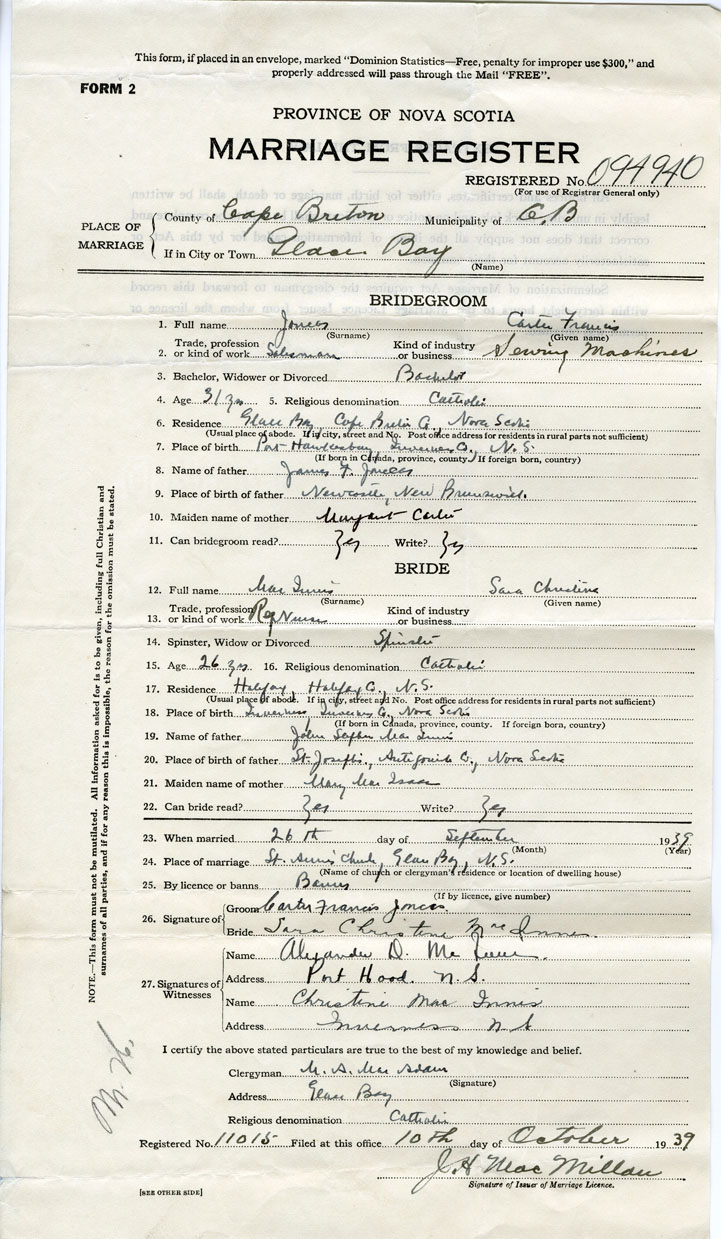 This form, if placed in an envelope, marked "Dominion Statistics—Free, penalty for improper use $300," and
properly addressed will pass through the Mail "FREE".
FORM 2
PROVINCE OF NOVA SCOTIA
MARRIAGE REGISTER
REGISTERED No. 094940
(For use of Registrar General only)
PLACE OF MARRIAGE
County of Cape Breton Municipality of C.B
If in City or Town Glace Bay
(Name)
BRIDEGROOM
1. Full name Carter Francis
(Surname) (Given name)
2. Trade, profession or kind of work Salesman Kind of industry or business Sewing Machines
3. Bachelor, Widower or Divorced Bachelor
4. Age 31 yrs 5. Religious denomination Catholic
6. Residence Glace Bay, Cape Breton Co., Nova Scotia
(Usual place of abode. If in city, street and No. Post office address for residents in rural parts not sufficient)
7. Place of birth Port Hawkesbury, Inverness Co., N.S.
(If born in Canada, province, county. If foreign born, country)
8. Name of father James
9. Place of birth of father Newcastle, New Brunswick.
10. Maiden name of mother Margaret Carter
11. Can bridegroom read? Yes Write? Yes
BRIDE
12. Full name Mac Innis Sara Christine
(Surname) (Given name)
13. Trade, profession or kind of work Reg Nurse Kind of industry or business
14. Spinster, Widow or Divorced Spinster
15. Age 26 yrs. 16. Religious denomination Catholic
17. Residence Halifax, Halifax Co., N.S.
(Usual place of abode. If in city, street and No. Post office address for residents in rural parts not sufficient)
18. Place of birth Inverness, Inverness Co., Nova Scotia
(If born in Canada, province, county. If foreign born, country)
19. Name of father John Mac Innis
20. Place of birth of father St. Joseph's, Antigonish Co., Nova Scotia
21. Maiden name of mother Mary Mac Isaac
22. Can bride read? Yes Write? Yes
23. When married 26th day of September 1939
(Month) (Year)
24. Place of marriage St. Anne's Church, Glace Bay, N.S.
(Name of church or clergyman's residence or location of dwelling house)
25. By licence or banns Banns
(If by licence, give number)
26. Signature of
Groom Carter Francis
Bride Sara Christine MacInnis.
27. Signatures of Witnesses
Name Alexander D.
Address Port Hood. N.S.
Name Christine Mac Innis
Address Inverness N S
I certify the above stated particulars are true to the best of my knowledge and belief.
Clergyman M. A. Mac Adam
(Signature)
Address Glace Bay
Religious denomination Catholic
Registered No. 11015 Filed at this office 10th day of October 1939
J.H MacMillan
Signature of Issuer of Marriage Licence.
[SEE OTHER SIDE]
NOTE.—This form must not be mutilated. All Information asked for is to be given, including full Christian and
surnames of all parties, and if for any reason this is impossible, the reason for the omission must be stated.